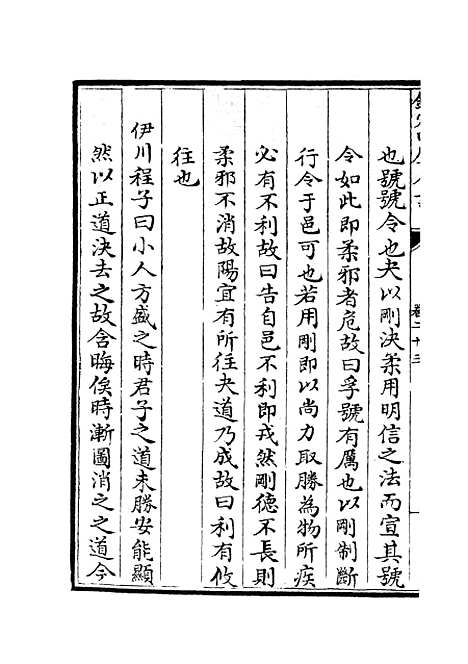 也號號令也夬以剛決柔用明信之法而宣其號
令如此即柔邪者危故曰孚號有厲也以剛制斷
行令于邑可也若用剛即以尚力取勝為物所疾
必有不利故曰告自邑不利即戎然剛德不長則
柔邪不消故陽宜有所往夬道乃成故曰利有攸
往也
伊川程子曰小人方盛之時君子之道未勝安能顯
然以正道決去之故含晦俟時漸圖消之之道今